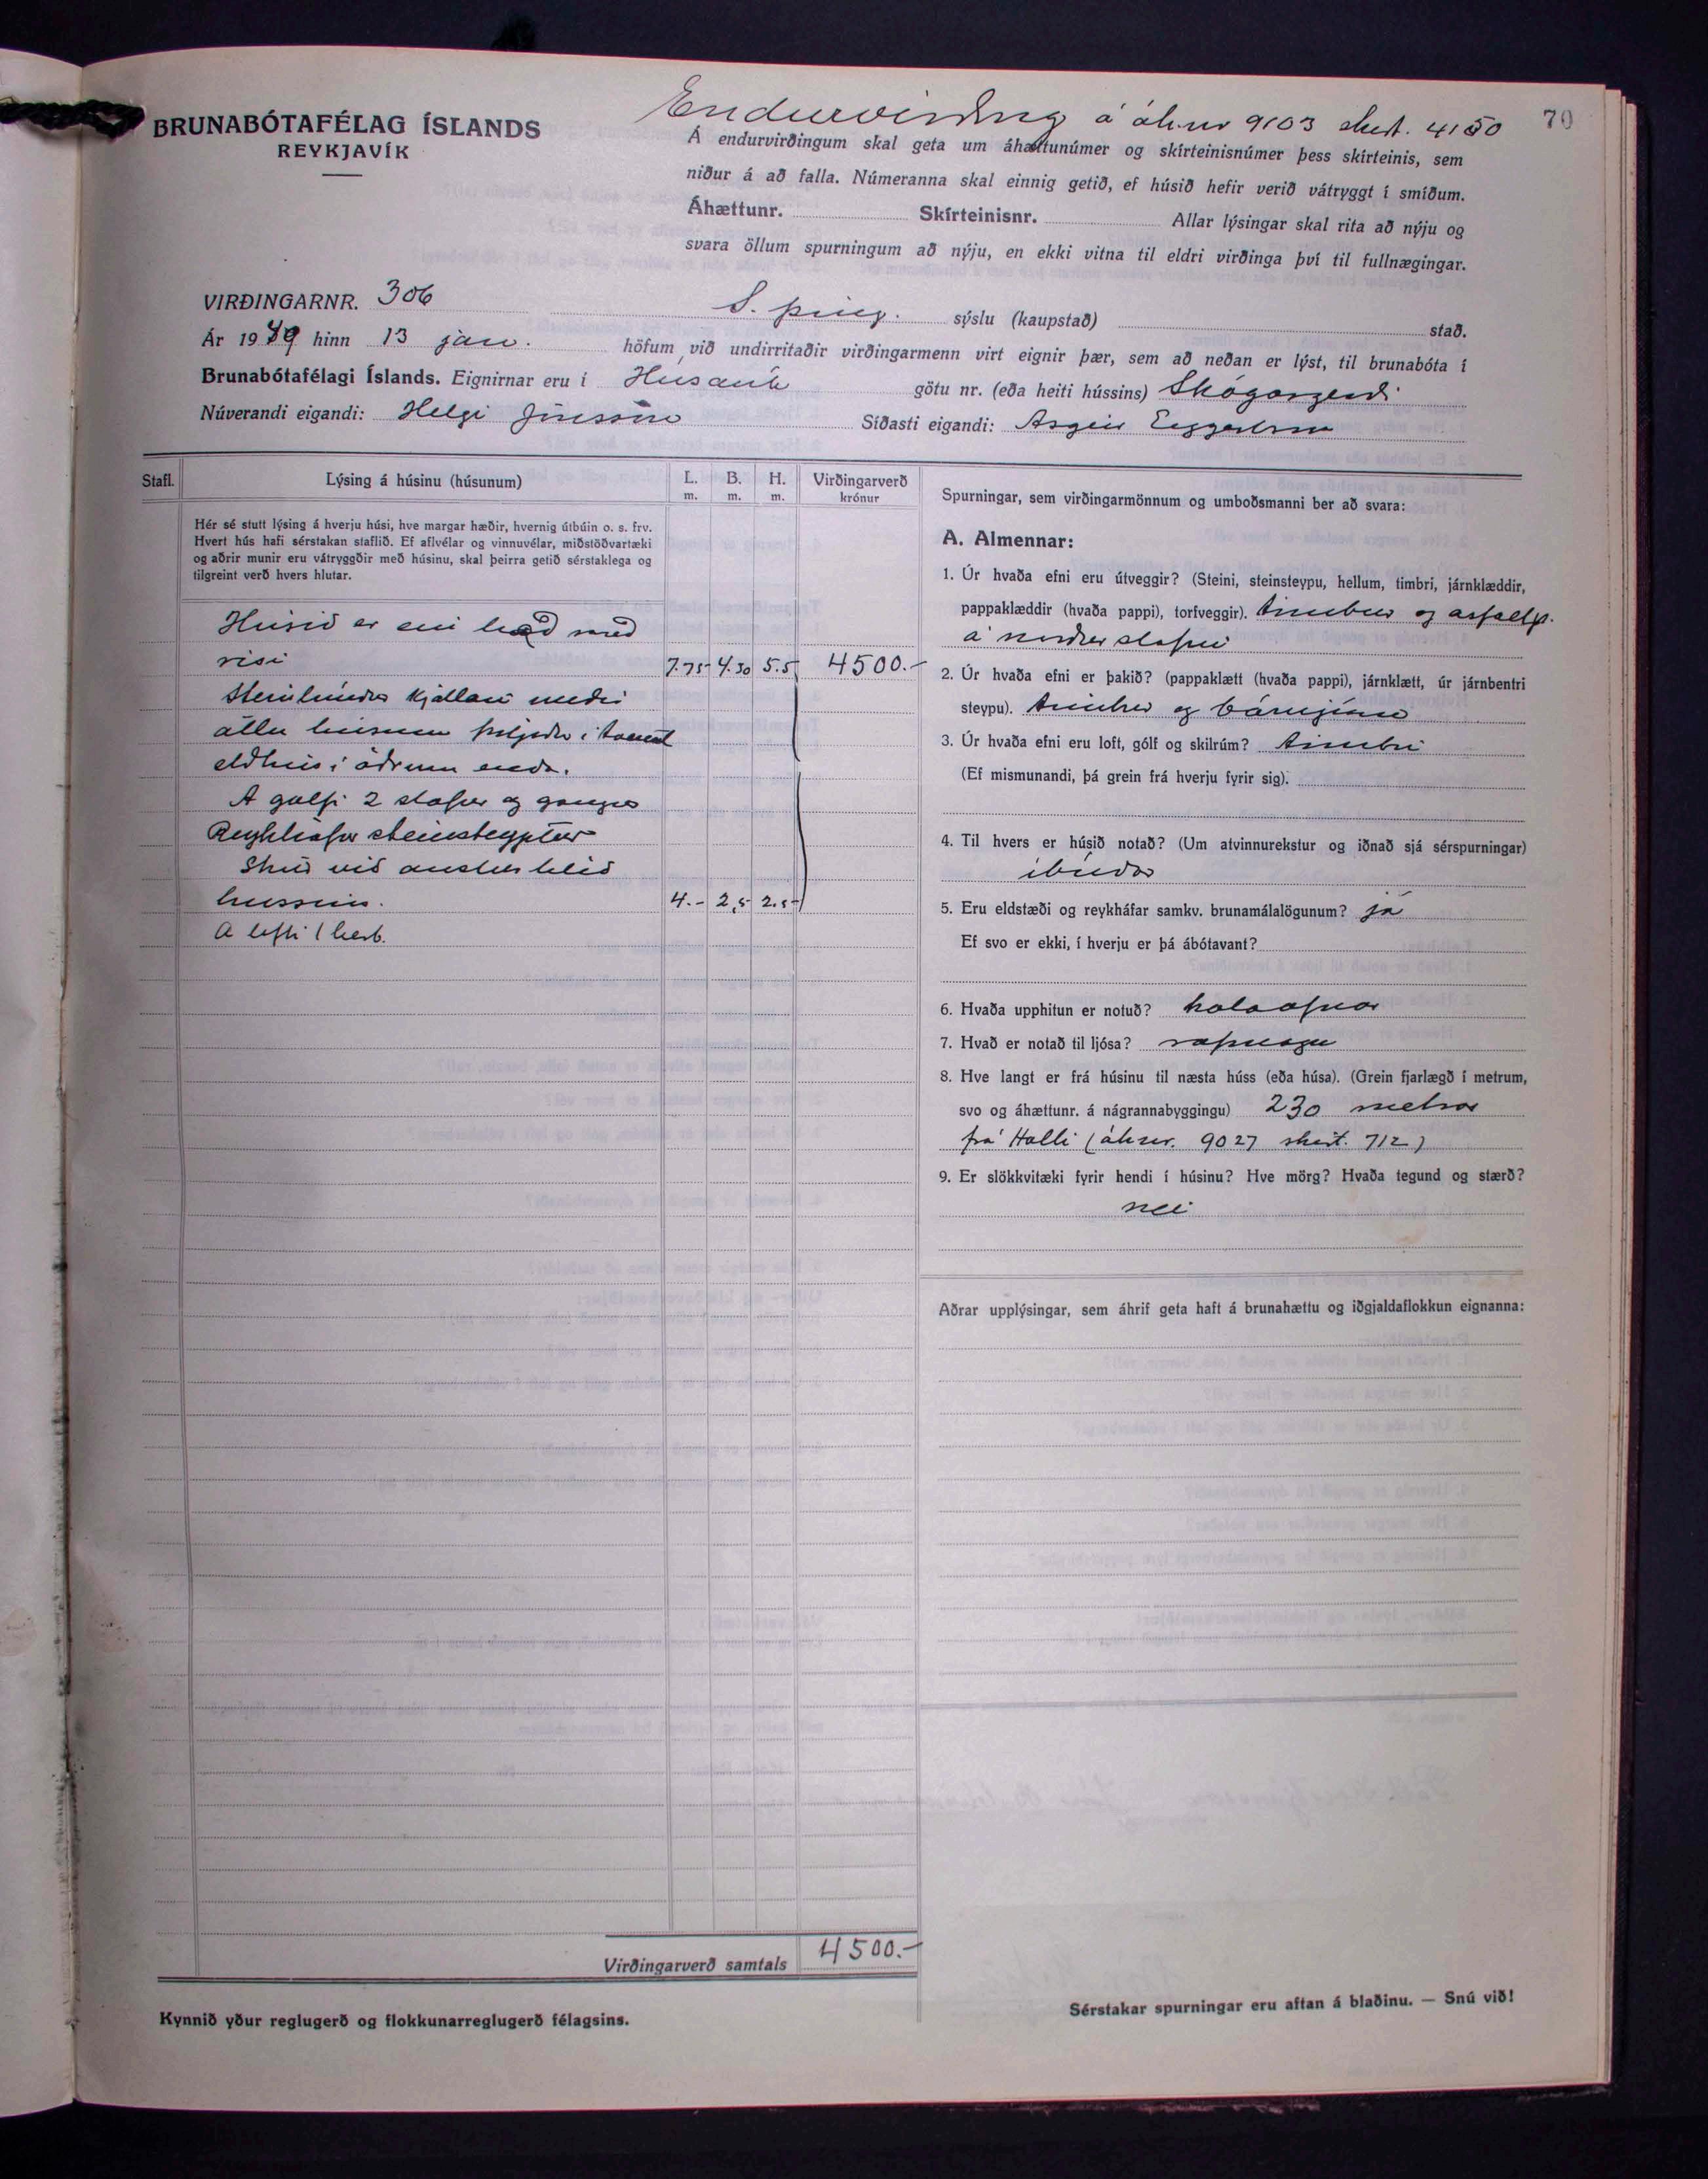 70
Endurvirðing á áh.nr 9103 skírt. 4150
BRUNABÓTAFÉLAG ÍSLANDS
REYKJAVÍK
Á endurvirðingum skal geta um áhættunúmer og skírteinisnúmer þess skírteinis, sem
niður á að falla. Númeranna skal einnig getið, ef húsið hefir verið vátryggt í smíðum.
Áhættunr. Skírteinisnr. Allar lýsingar skal rita að nýju og
svara öllum spurningum að nýju, en ekki vitna til eldri virðinga því til fullnægingar.
VIRÐINGARNR. 306 S. þing. sýslu (kaupstað) stað.
Ár 1939 hinn 13 jan. höfum við undirritaðir virðingarmenn virt eignir þær, sem að neðan er lýst, til brunabóta í
Brunabótafélagi Íslands. Eignirnar eru í Húsavík götu nr. (eða heiti hússins) Skógargerði
Núverandi eigandi: Helgi Jónsson Síðasti eigandi: Asgeir Eggertsson
Stafl. Lýsing á húsinu (húsunum) L. m. B. m. H. m. Virðingarverð krónur
Hér sé stutt lýsing á hverju húsi, hve margar hæðir, hvernig útbúin o. s. frv.
Hvert hús hafi sérstakan staflið. Ef aflvélar og vinnuvélar, miðstöðvartæki
og aðrir munir eru vátryggðir með húsinu, skal þeirra getið sérstaklega og
tilgreint verð hvers hlutar.
Húsið er ein hæð með
risi 7.75 4.30 5.5 4500.-
Steinlímdur kjallari undir
öllu húsinu þiljaður í tvennt
eldhús í öðrum enda.
A gólfi 2 stofur og gangur
Reykháfur steinsteyptur
Skúr við austur hlið
hússins. 4.- 2,5 2.5
A lofti 1 herb.
Virðingarverð samtals 4500.-
Kynnið yður reglugerð og flokkunarreglugerð félagsins.
Spurningar, sem virðingarmönnum og umboðsmanni ber að svara:
A. Almennar:
1. Úr hvaða efni eru útveggir? (Steini, steinsteypu, hellum, timbri, járnklæddir,
pappaklæddir (hvaða pappi), torfveggir). timbur og asfaltp.
á norður stafni
2. Úr hvaða efni er þakið? (pappaklætt (hvaða pappi), járnklætt, úr járnbentri
steypu). timbur og bárujárn
3. Úr hvaða efni eru loft, gólf og skilrúm? timbri
(Ef mismunandi, þá grein frá hverju fyrir sig).
4. Til hvers er húsið notað? (Um atvinnurekstur og iðnað sjá sérspurningar)
íbúðar
5. Eru eldstæði og reykháfar samkv. brunamálalögunum? já
Ef svo er ekki, í hverju er þá ábótavant?
6. Hvaða upphitun er notuð? kolaofnar
7. Hvað er notað til ljósa? rafmagn
8. Hve langt er frá húsinu til næsta húss (eða húsa). (Grein fjarlægð í metrum,
svo og áhættunr. á nágrannabyggingu) 230 metrar
frá Halli (áh.nr. 9027 skírt. 712)
9. Er slökkvitæki fyrir hendi í húsinu? Hve mörg? Hvaða tegund og stærð?
nei
Aðrar upplýsingar, sem áhrif geta haft á brunahættu og iðgjaldaflokkun eignanna:
Sérstakar spurningar eru aftan á blaðinu. — Snú við!